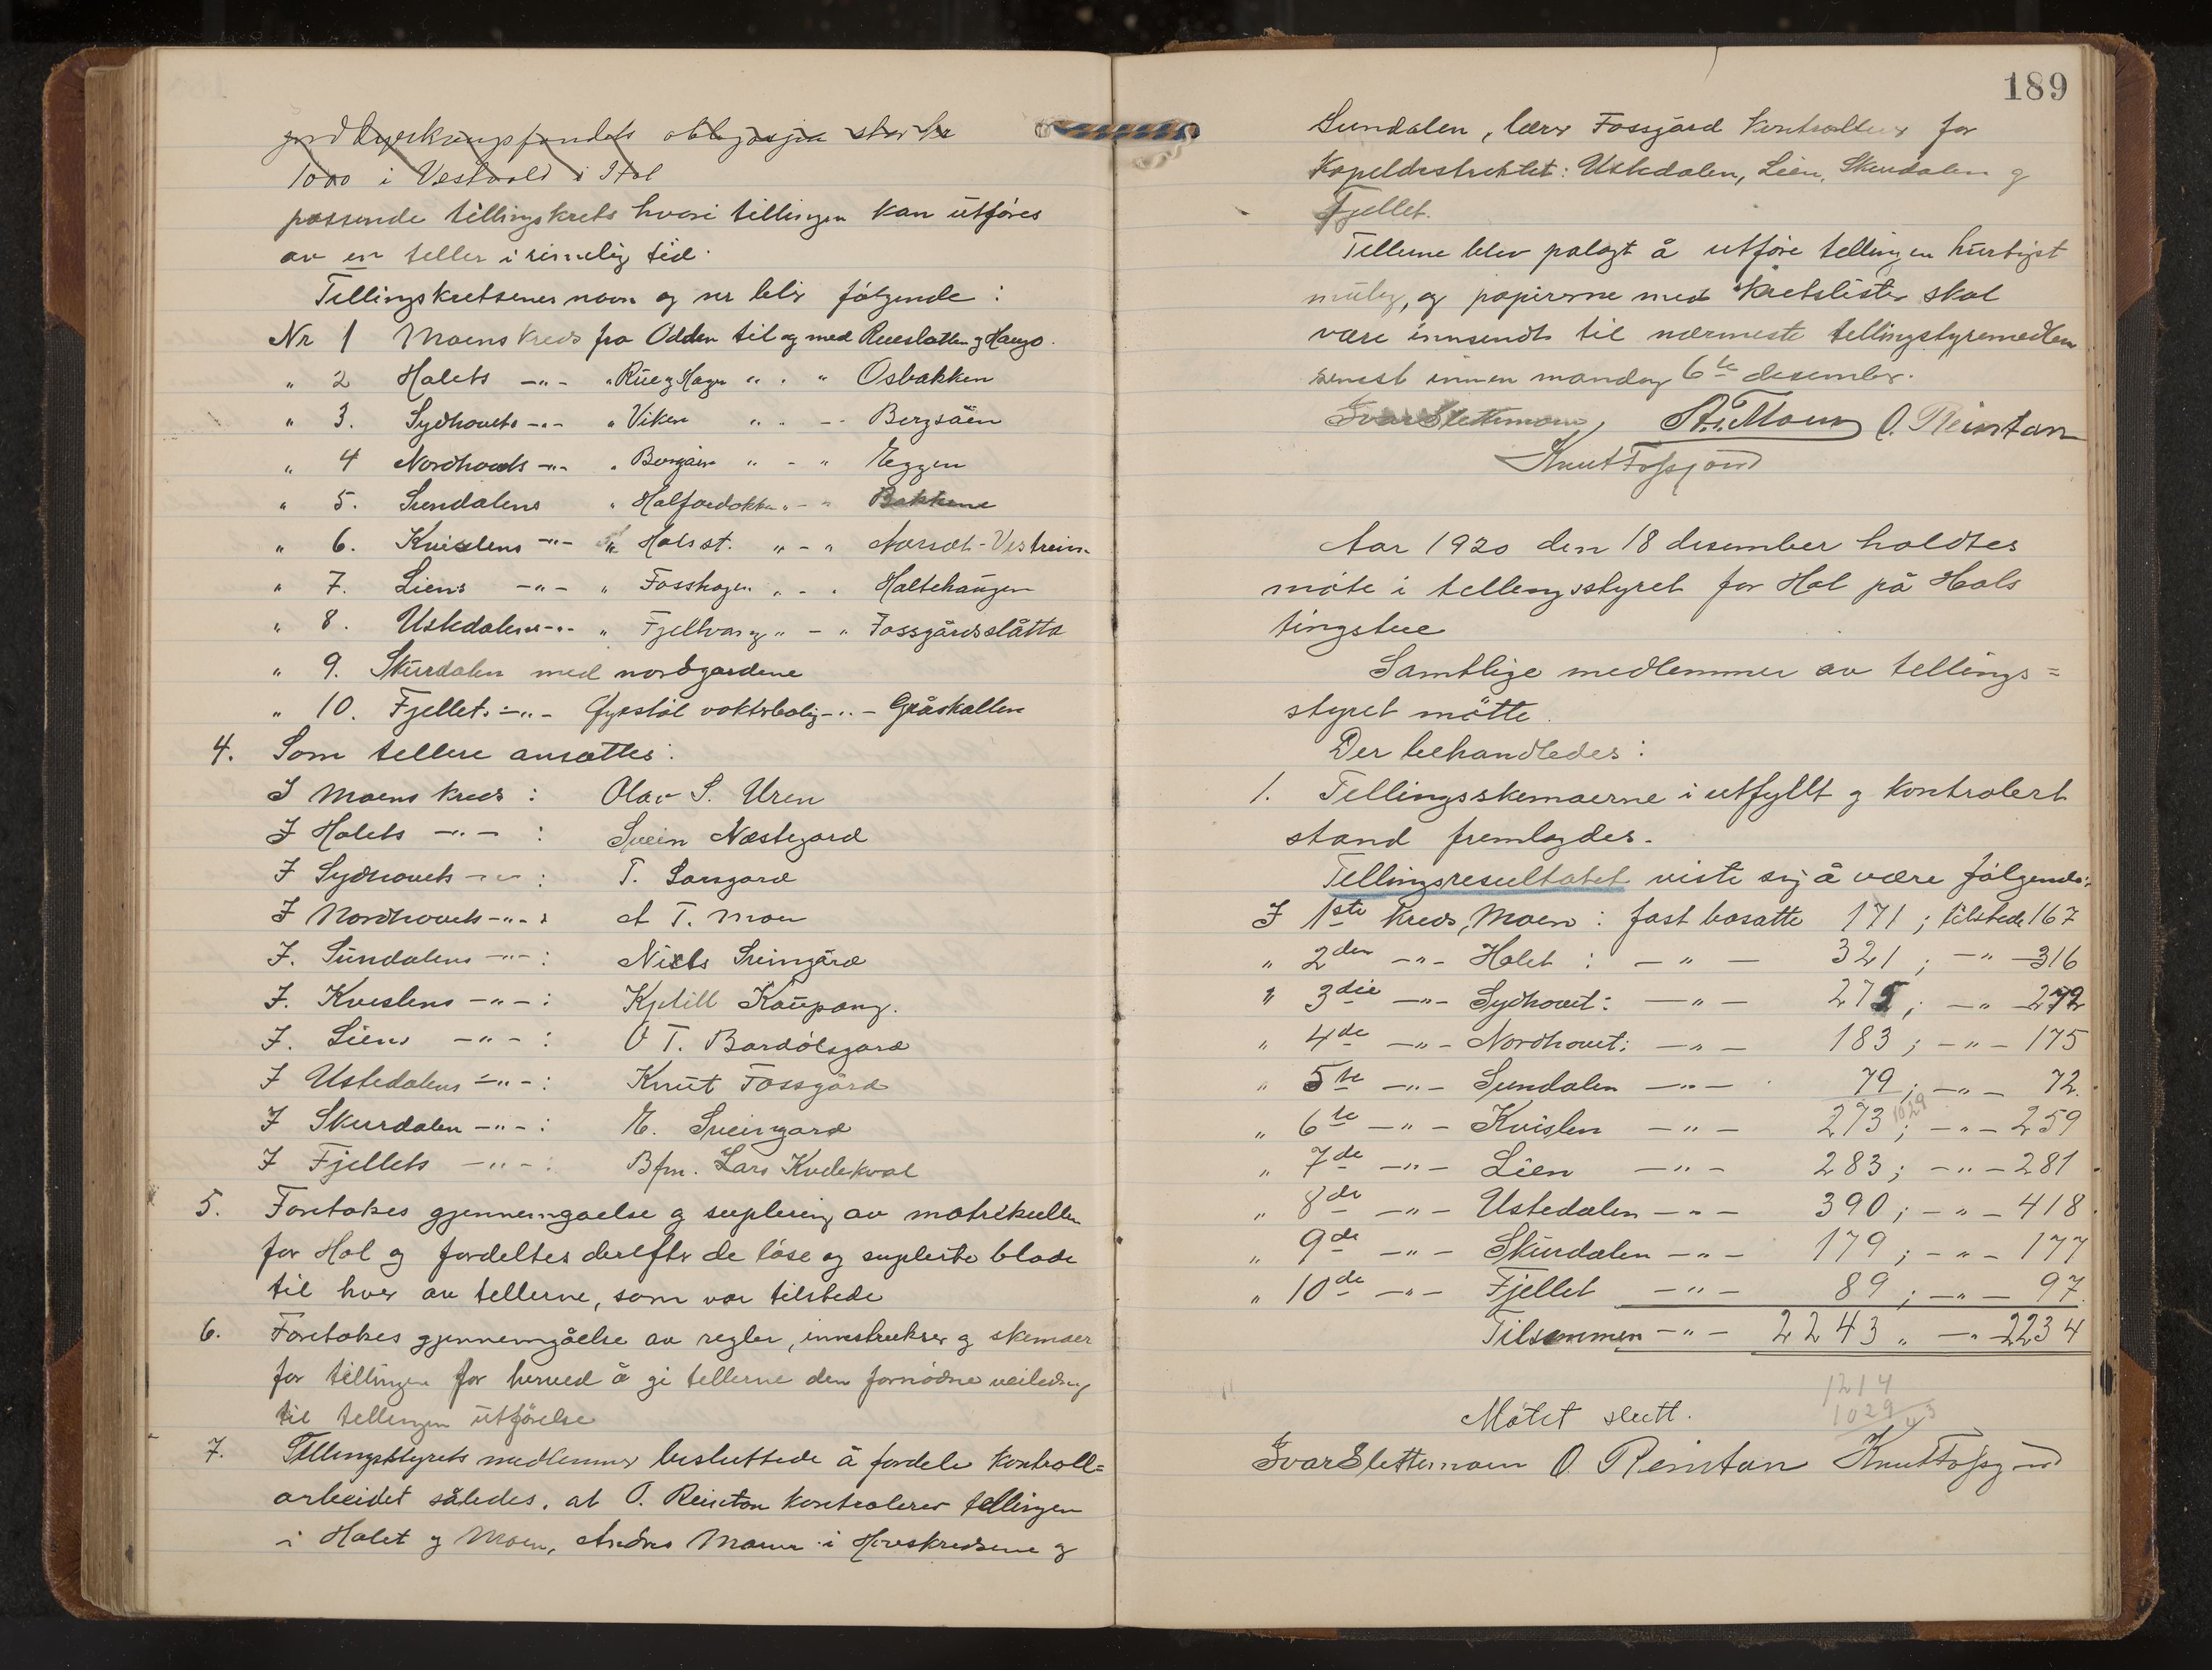 jorddyrkningsfondets obligasjon stor kr
1000 i Vestvold i Hol
passende tellingskrets hvori tellingen kan utföres
av en teller i rimelig tid.
Tellingskretsenes navn og nr blir følgende :
Nr 1 Moens kreds fra Odden til og med Rueslåtten g Haugo.
" 2 Holets -"- " Rue g Hagen " . " Osbakken
" 3. Sydhovets -"- " Viken " . - Bergsåen
" 4 Nordhovets -"- " Bergåen " - " Eggen
" 5. Sundalens " Halfardokken " - " Bakkene
" 6. Kvislens -"- " Hols st. " - " Vestrein
" 7. Liens -"- " Fosshagen " - . Haltehaugen
" 8. Ustedalens -"- " Fjelltvang " - " Fossgårdsslåtta
" 9. Skurdalen med nordgardene
" 10. Fjellets -"- Gyrstøl vokterbolig -"- Gråskallen
4. Som tellere ansattes :
I Moens kreds : Olav S. Uren
I Holets -"- : Svein Næstegard
I Sydhovets -"- : T. Larsgard
I Nordhovets -"- : A T. Moen
I. Sundalens -"- : Niels Sveingård
I. Kvislens -"- : Kjetill Kaupang.
I. Liens -"- : O T. Bardølsgard
I Ustedalens -"- : Knut Fossgård
I Skurdalen -"- : E. Sveingard
I Fjellets -"- : Bfm. Lars Kvelekval
5. Foretokes gjennemgaaelse g suplering av matrikullen
for Hol og fordeltes derefter de løse og suplerte blade
til hver av tellerne, som var tilstede
6. Foretokes gjennemgåelse av regler, instrukser g skemaer
for tellingen for herved å gi tellerne den fornødne veiledning
til tellingen utførelse
7. Tellingsstyrets medlemmer besluttede å fordele kontroll=
arbeidet således, at O. Reinton kontrolerer tellingen
i Holet g Moen, Andres Moen i Hovskredsene g
189
Sundalen, lærer Fossgård kontrollerer for
Kapeldistriktet: Ustedalen, Lien, Skurdalen g
Fjellet.
Tellerne blev palagt å utføre tellingen hurtigst
mulig, og papirerne med kretslister skal
være innsendt til nærmeste tellingstyremedlem
senest innen mandag 6te desember.
Ivar Slettemoen, A. T. Moen O. Reinton
Knut Fossgård
Aar 1920 den 18 desember holdtes
møte i tellingsstyret for Hol på Hols
tingstue
Samtlige medlemmer av tellings=
styret møtte.
Der behandledes :
1. Tellingsskemaerne i utfyllt g kontrolert
stand fremlagdes.
Tellingsresultatet viste sig å være følgende:
I 1ste kreds, Moen : fast bosatte 171 ; tilstede 167
" 2den -"- Holet : - " - 321 ; -"- 316
" 3die -"- Sydhovet : - " - 275 ; -"- 272
" 4de -"- Nordhovet : - " - 183 ; - " - 175
" 5te -"- Sundalen -"- 79 ; -"- 72.
1029
" 6te -"- Kvislen - " - 273 ; -"- 259
" 7de -"- Lien -"- 283 ; -"- 281
" 8de -"- Ustedalen -"- 390 ; - " - 418
" 9de -"- Skurdalen -"- 179 ; - " - 177
" 10de -"- Fjellet -"- 89 ; -"- 97.
Tilsammen -"- 2243 " -"- 2234
1214
1029
43
Møtet slutt.
Ivar Slettemoen O. Reinton Knut Fossgård